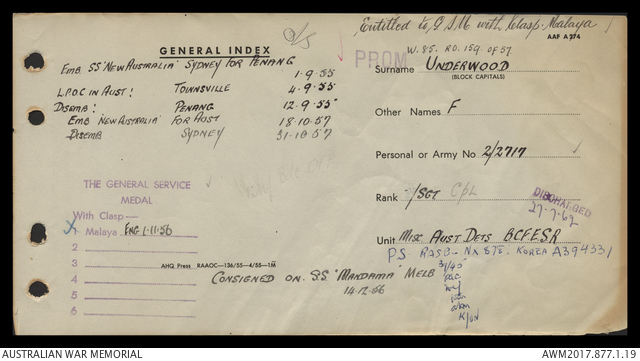 Entitled to G S M with Clasp. Malaya
AAF A 274
O/S
PROM
W. 85. RO. 159 of 57
GENERAL INDEX
Emb SS 'New Australia' Sydney for Penang
1.9.55
L.P.O.C in Aust! Townsville 4.9.55
Disemb: Penang 12.9.55
Emb 'New Australia' for Aust 18.10.57
Disemb Sydney 31.10.57
Surname UNDERWOOD
(BLOCK CAPITALS)
Other Names F
Personal or Army No 2/2717
Rank -/SGT CPL
27-7-62
Unit Misc Aust Dets BCFESR
PS RASB - NX 878. KOREA A394331
39/45
PAC
THE GENERAL SERVICE
MEDAL
With Clasp—
X Malaya 1-11-56
2
3
4
5
6
AHQ Press RAAOC—136/55—4/55—1M
Consigned on S.S "Mandama" Melb
14.12.56
AUSTRALIAN WAR MEMORIAL
AWM2017.877.1.19